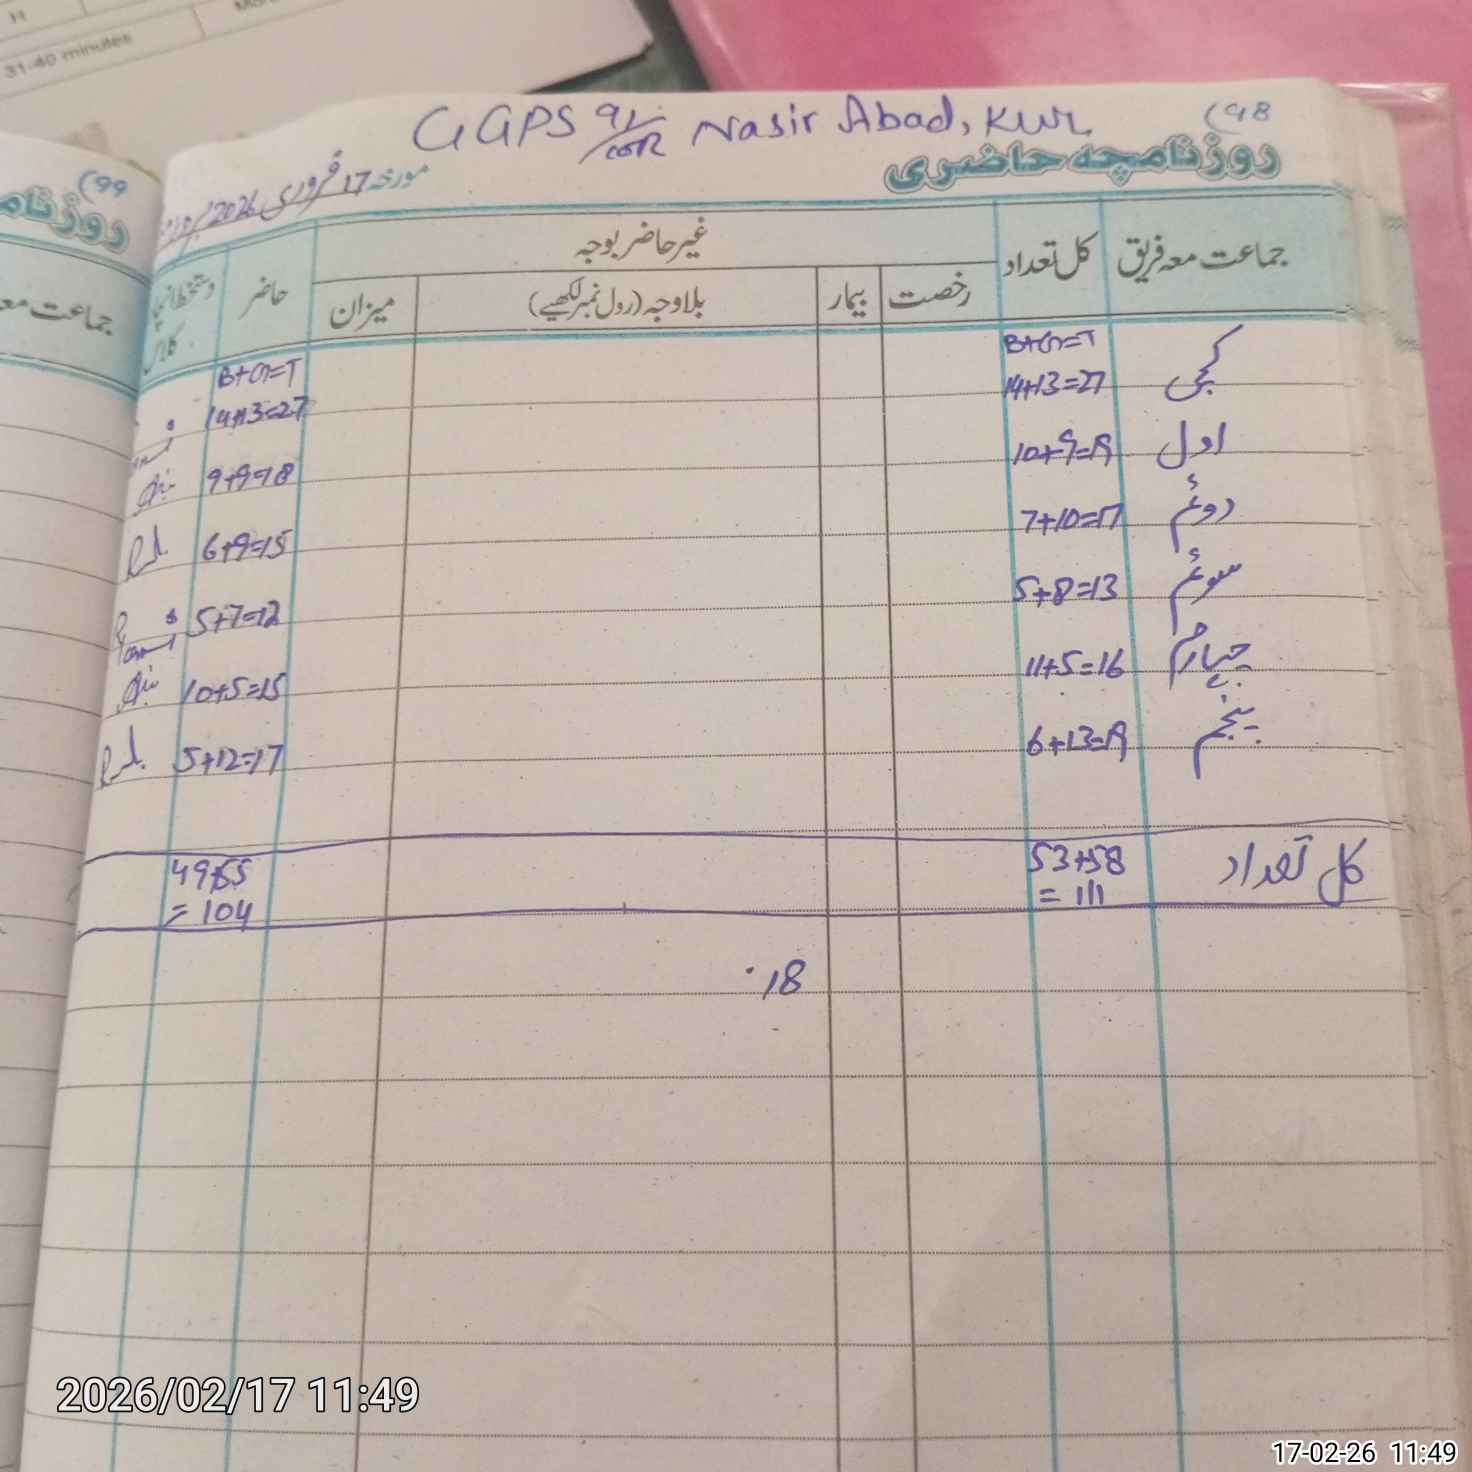 31-40 minutes
GGPS 91/10R Nasir Abad, KWL
(98
روزنامچہ حاضری
مورخہ 17 فروری 2026
جماعت معہ فریق کل تعداد غیر حاضر بوجہ حاضر
رخصت بیمار بلاوجہ (رول نمبر لکھیے) میزان
B+G=T B+G=T
کچی 14+13=27 14+13=27
اول 10+9=19 9+9=18
دوئم 7+10=17 6+9=15
سوئم 5+8=13 5+7=12
چہارم 11+5=16 10+5=15
پنجم 6+13=19 5+12=17
کل تعداد 53+58 49+55
= 111 = 104
18
(99
جماعت مع
2026/02/17 11:49
17-02-26 11:49